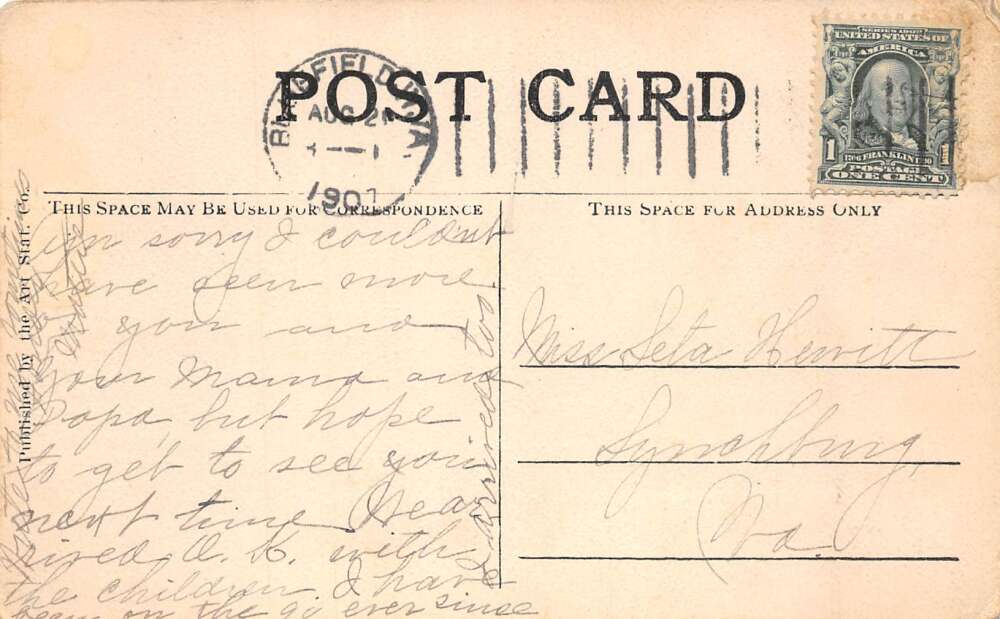 POST CARD
BLUEFIELD W.VA
AUG 21
1907
SERIES 1902
UNITED STATES OF
AMERICA
1 1
1706 FRANKLIN 1790
POSTAGE
ONE CENT
THIS SPACE MAY BE USED FOR CORRESPONDENCE
THIS SPACE FOR ADDRESS ONLY
Published by the Art Stat. Co.
I'm sorry I couldn't
have seen more
you and
your Mama and
Papa, but hope
to get to see you
next time We ar
rived O. K. with
the children I have
been on the go ever since
I arrived too
Miss Leta Hewitt
Lynchburg,
Va.